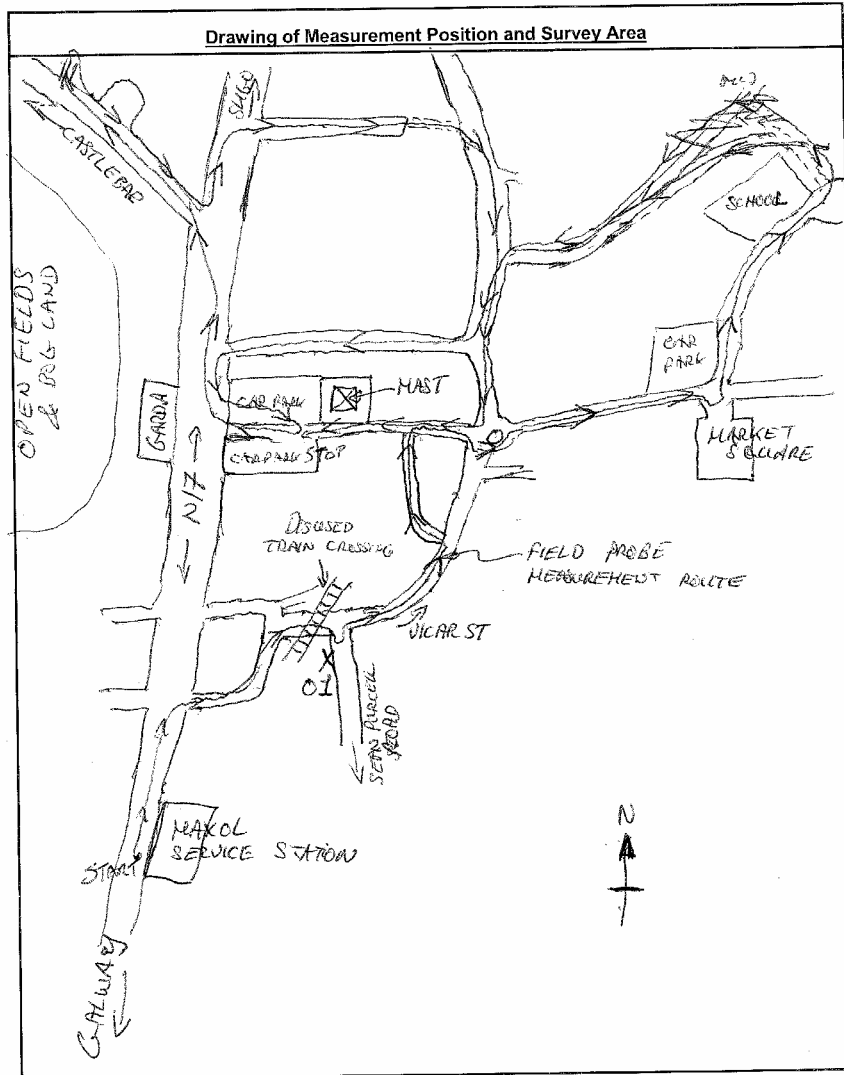 Drawing of Measurement Position and Survey Area
SLIGO
CASTLEBAR
SCHOOL
OPEN FIELDS
& BOG LAND
CAR
PARK
GARDA
CAR PARK
MAST
CAR PARK STOP
MARKET
SQUARE
N17
DISUSED
TRAIN CROSSING
FIELD PROBE
MEASUREMENT ROUTE
VICAR ST
X
01
SEAN PURCELL
ROAD
MAXOL
SERVICE STATION
START
N
GALWAY